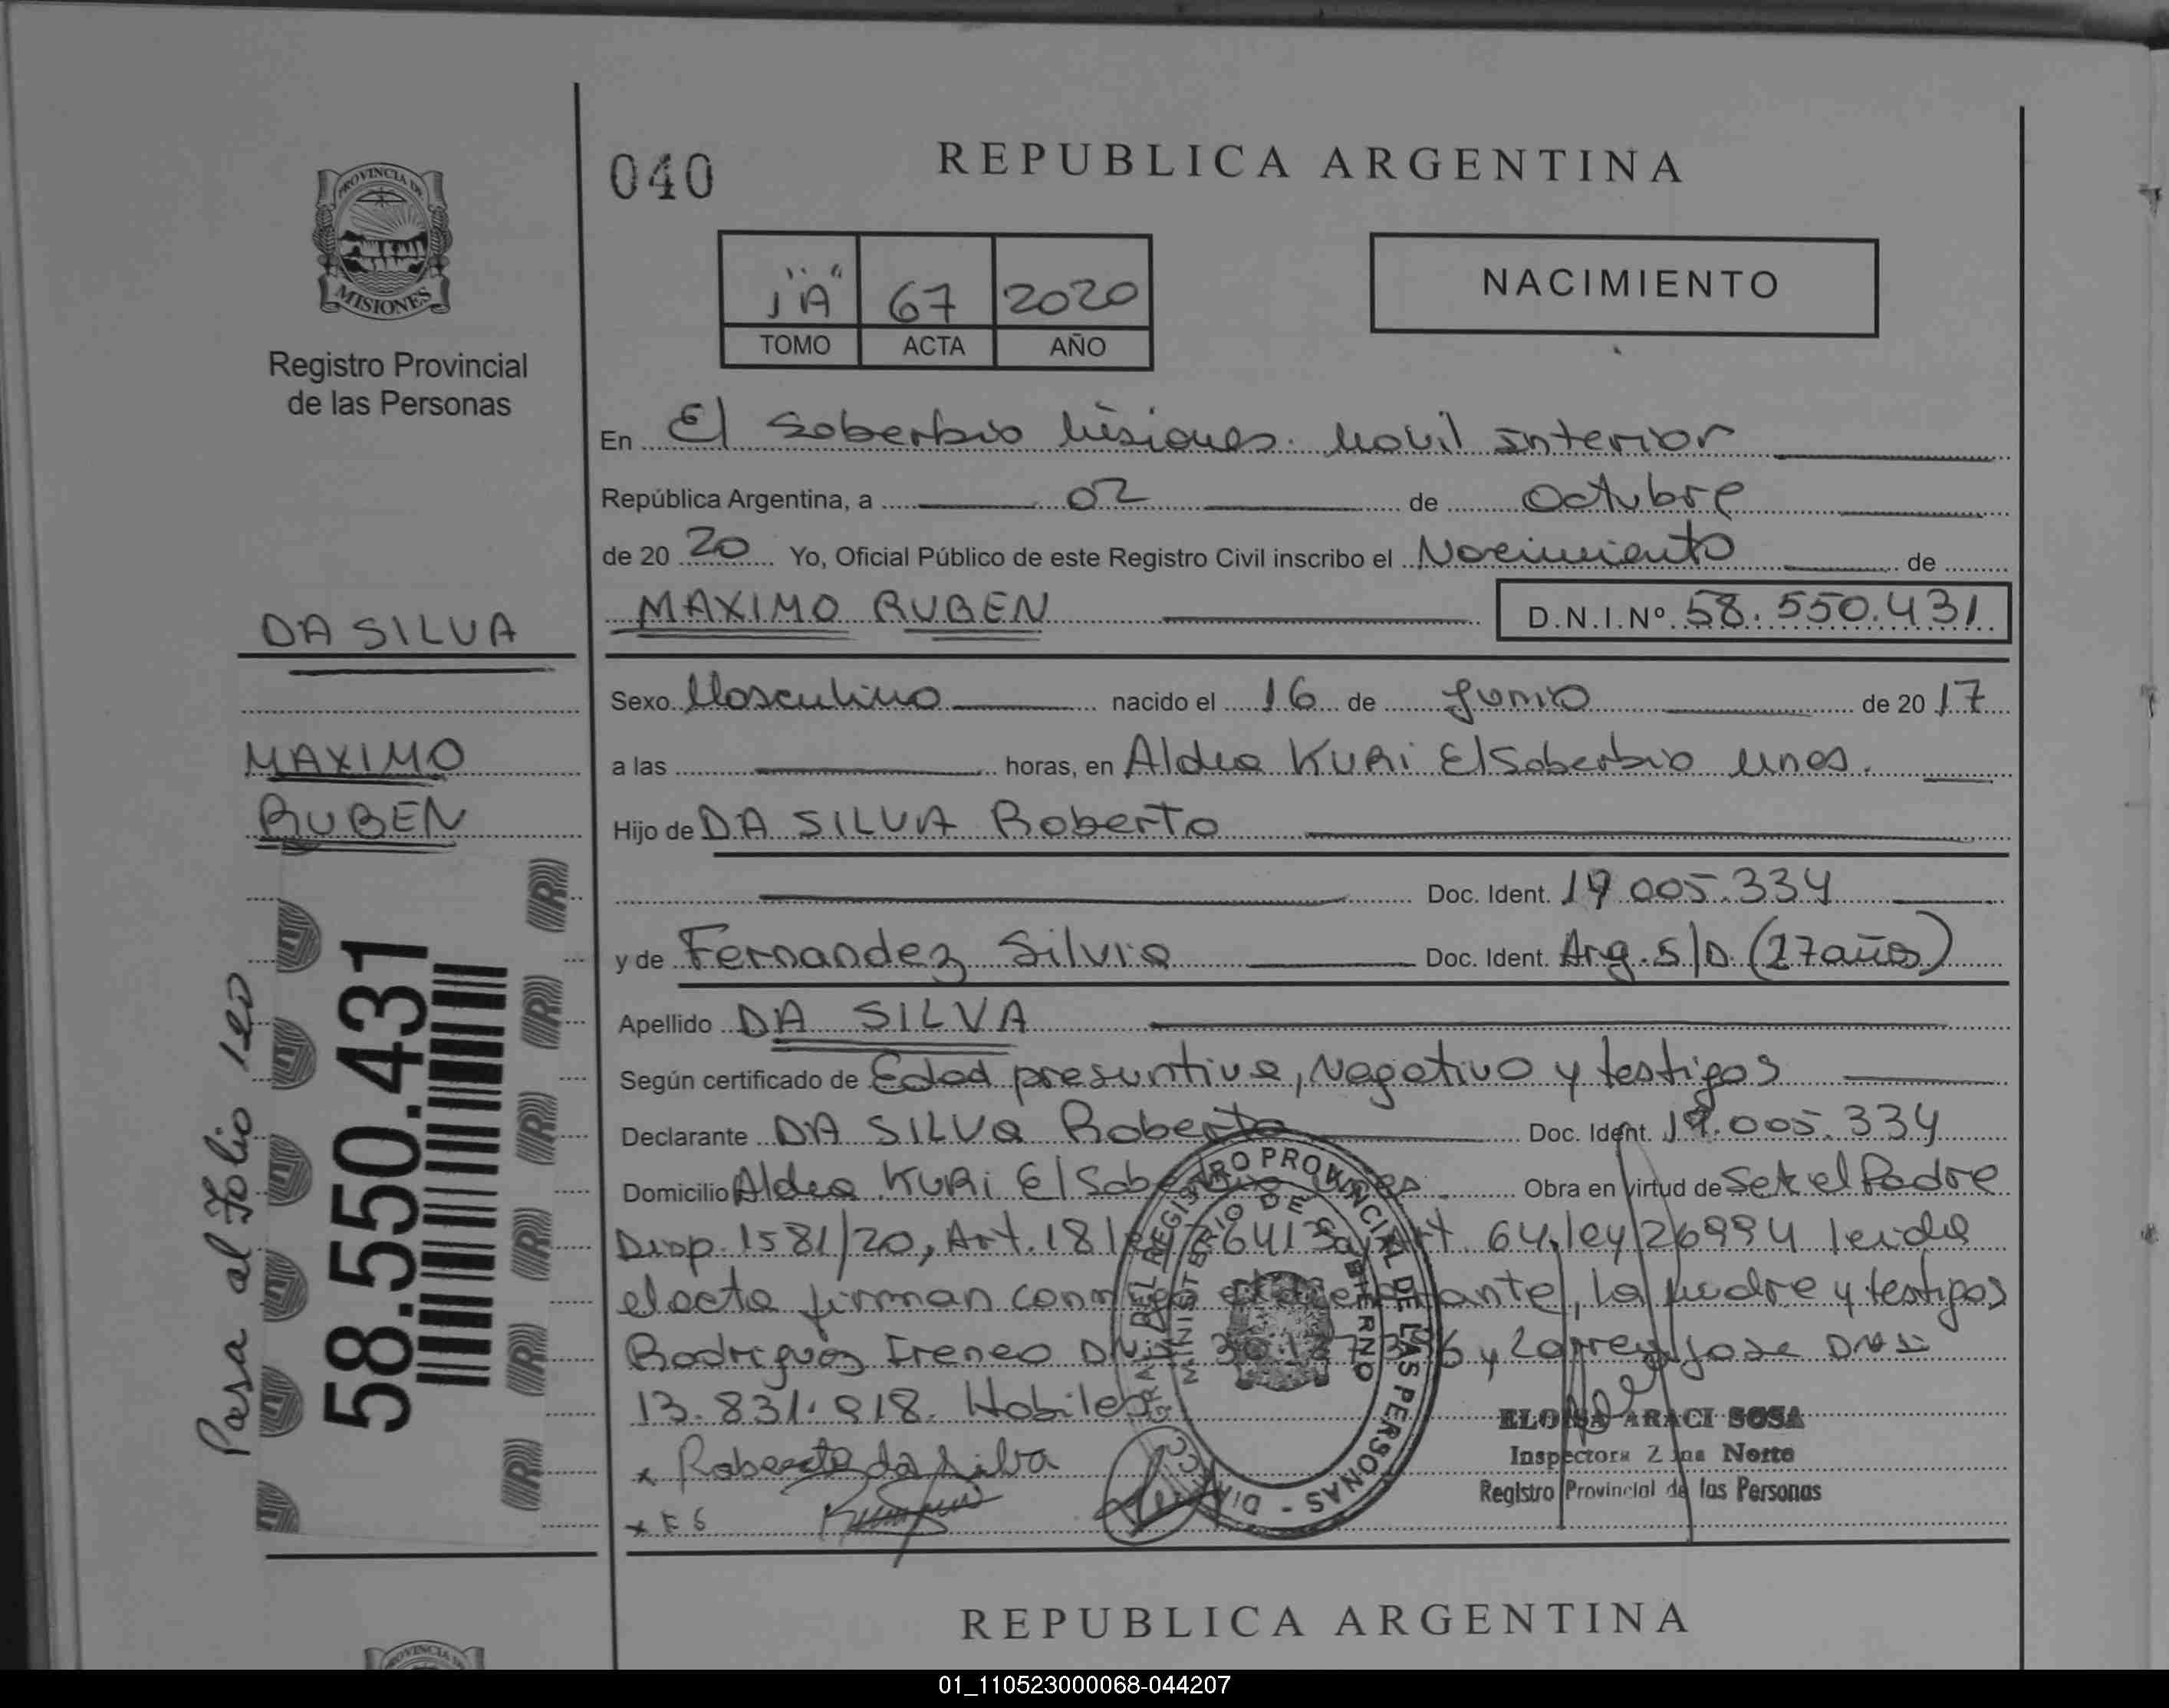 040
REPUBLICA ARGENTINA
PROVINCIA DE
MISIONES
Registro Provincial
de las Personas
1 "A" 67 2020
TOMO ACTA AÑO
NACIMIENTO
En El Soberbio Misiones. Movil Interior
República Argentina, a 02 de Octubre
de 20 20 Yo, Oficial Público de este Registro Civil inscribo el Nacimiento de
MAXIMO RUBEN D.N.I.Nº 58.550.431
DA SILVA
MAXIMO
RUBEN
Sexo Masculino nacido el 16 de Junio de 20 17
a las horas, en Aldea KURi El Soberbio Mnes.
Hijo de DA SILVA Roberto
Doc. Ident. 19.005.334
y de Fernandez Silvia Doc. Ident. Arg. S/D. (27años)
Apellido DA SILVA
Según certificado de Edad presuntiva, Negativo y testigos
Declarante DA SILVA Roberto Doc. Ident. 19.005.334
Domicilio Aldea KURi El Soberbio Mnes. Obra en virtud de Ser el Padre
Disp. 1581/20, Art. 64, ley 26994 leida
el acta firman conmigo el declarante, la madre y testigos
Rodriguez Ireneo DNI y Jose DNI
13.831.918. Habiles
x Roberto da silva
x F S
REGISTRO PROVINCIAL DE LAS PERSONAS
MINISTERIO DE GOBIERNO
ELOISA ARACI SOSA
Inspectora Zona Norte
Registro Provincial de las Personas
Pasa al Folio 120
58.550.431
REPUBLICA ARGENTINA
01_110523000068-044207